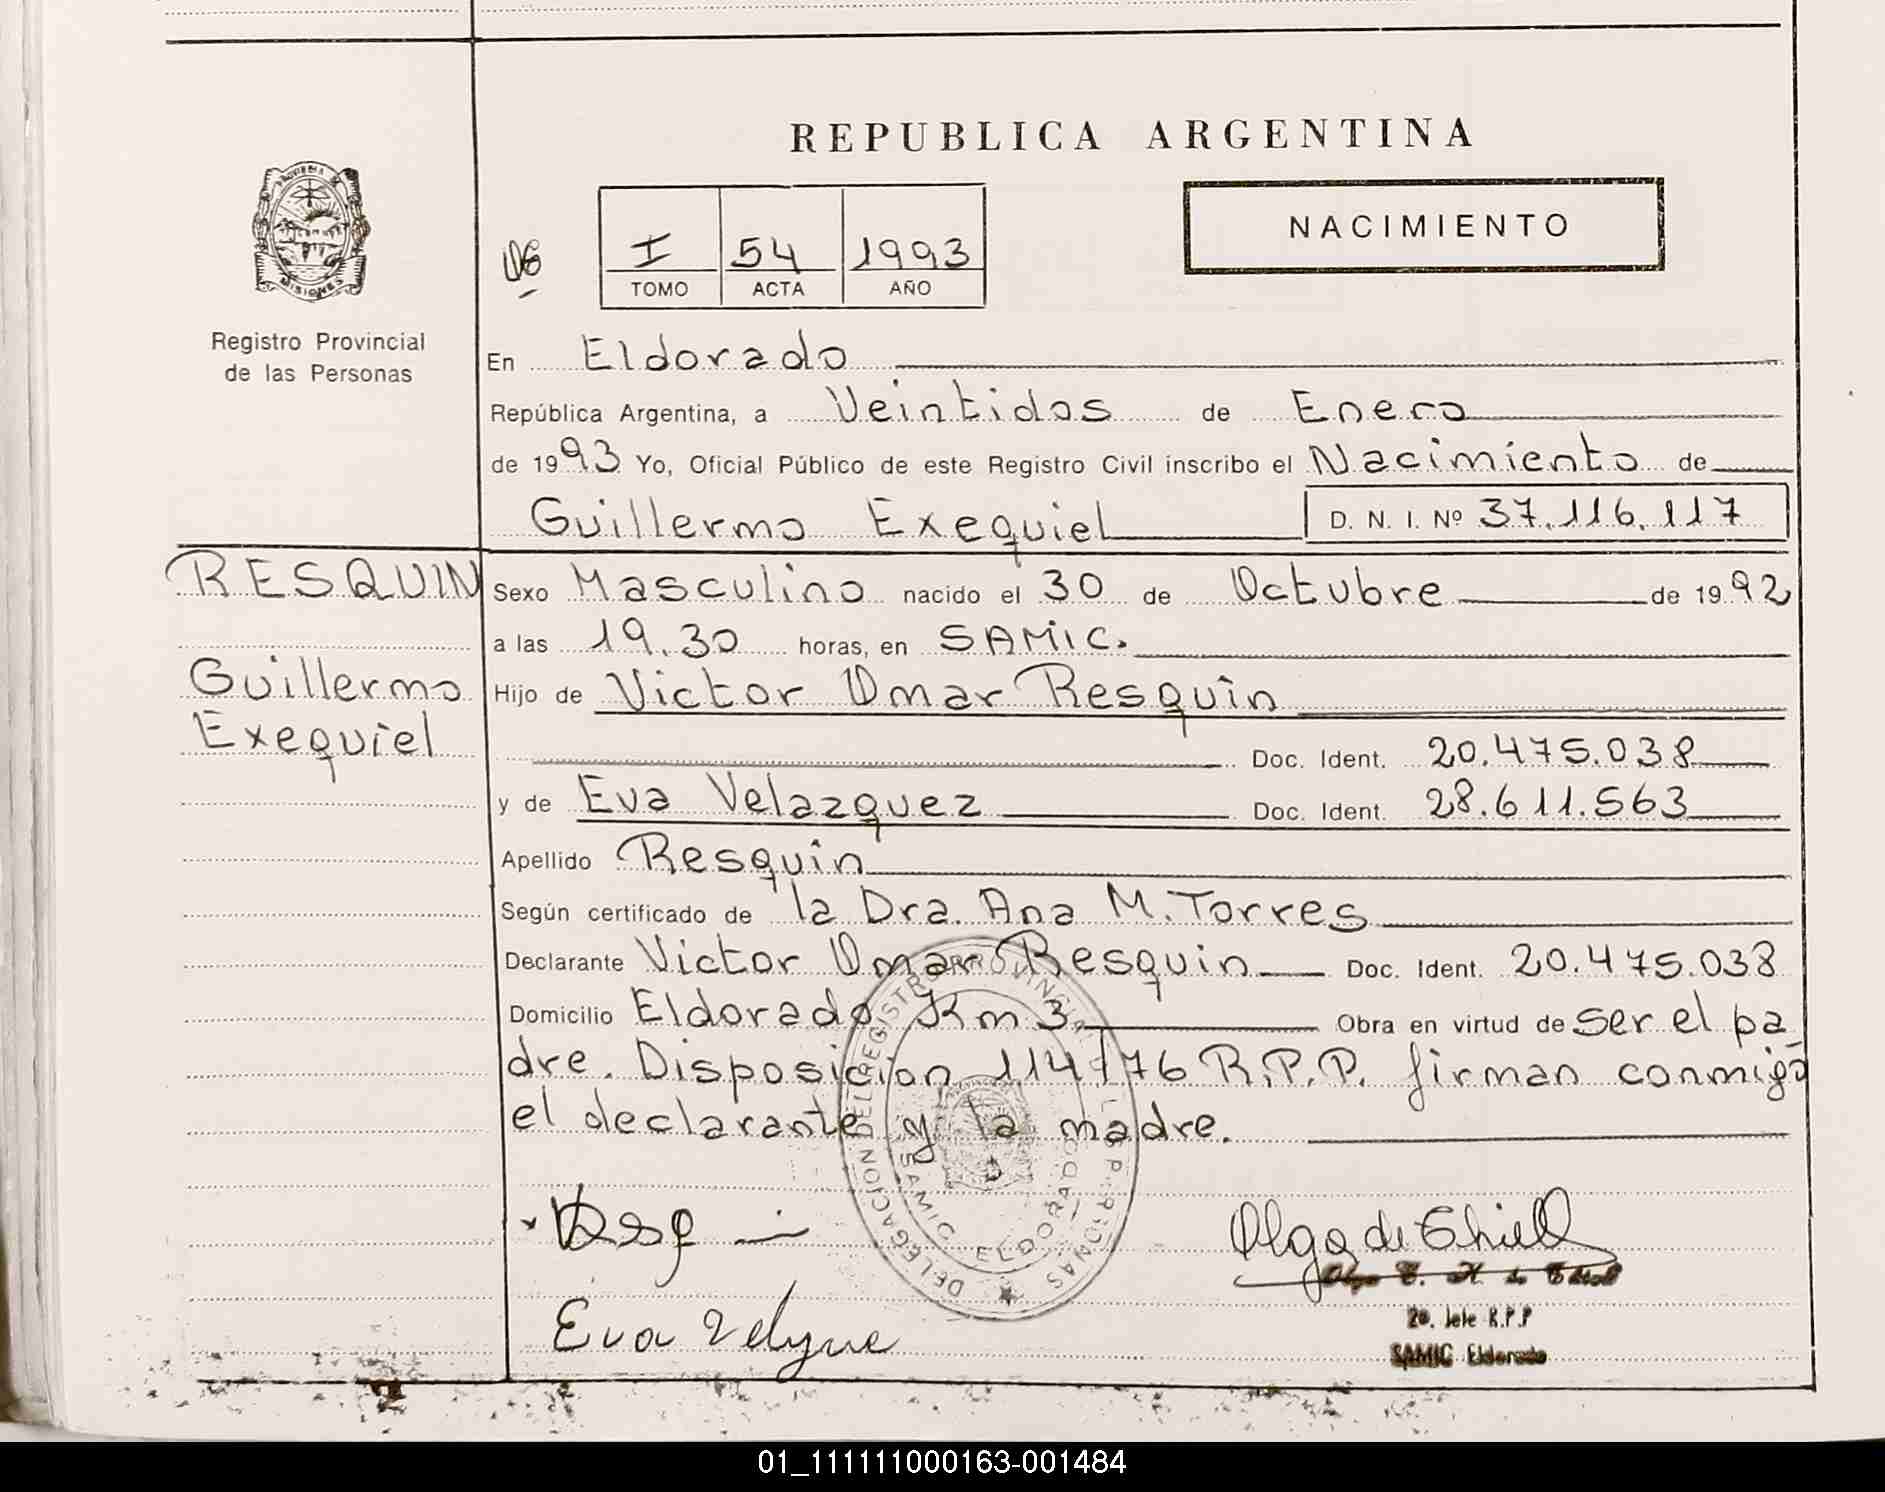 REPUBLICA ARGENTINA
PROVINCIA DE
MISIONES
Registro Provincial
de las Personas
I 54 1993
TOMO ACTA AÑO
NACIMIENTO
En Eldorado
República Argentina, a Veintidos de Enero
de 1993 Yo, Oficial Público de este Registro Civil inscribo el Nacimiento de
Guillermo Exequiel D. N. I. Nº 37.116.117
RESQUIN
Guillermo
Exequiel
Sexo Masculino nacido el 30 de Octubre de 1992
a las 19.30 horas, en SAMIC.
Hijo de Victor Omar Resquin
Doc. Ident. 20.475.038
y de Eva Velazquez Doc. Ident. 28.611.563
Apellido Resquin
Según certificado de la Dra. Ana M. Torres
Declarante Victor Omar Resquin Doc. Ident. 20.475.038
Domicilio Eldorado Km 3 Obra en virtud de ser el pa
dre. Disposicion 114/76 R.P.P. firman conmigo
el declarante y la madre.
DELEGACION DEL REGISTRO PROVINCIAL DE LAS PERSONAS
SAMIC ELDORADO
Olga de
Eva
2º. Jefe R.P.P
SAMIC Eldorado
01_111111000163-001484